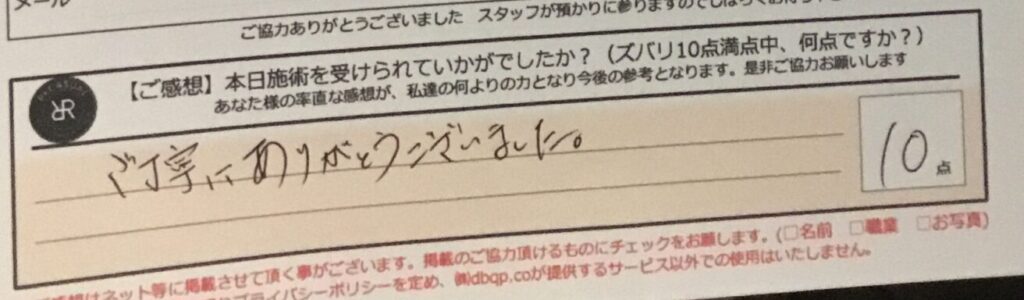 メール
ご協力ありがとうございました スタッフが預かりに参りますのでしばらくお待ち
RR
【ご感想】本日施術を受けられていかがでしたか？（ズバリ10点満点中、何点ですか？）
あなた様の率直な感想が、私達の何よりの力となり今後の参考となります。是非ご協力お願いします
ご丁寧にありがとうございました。
10点
ネット等に掲載させて頂く事がございます。掲載のご協力頂けるものにチェックをお願します。(□名前 □職業 □お写真)
プライバシーポリシーを定め、㈱dbqp,coが提供するサービス以外での使用はいたしません。